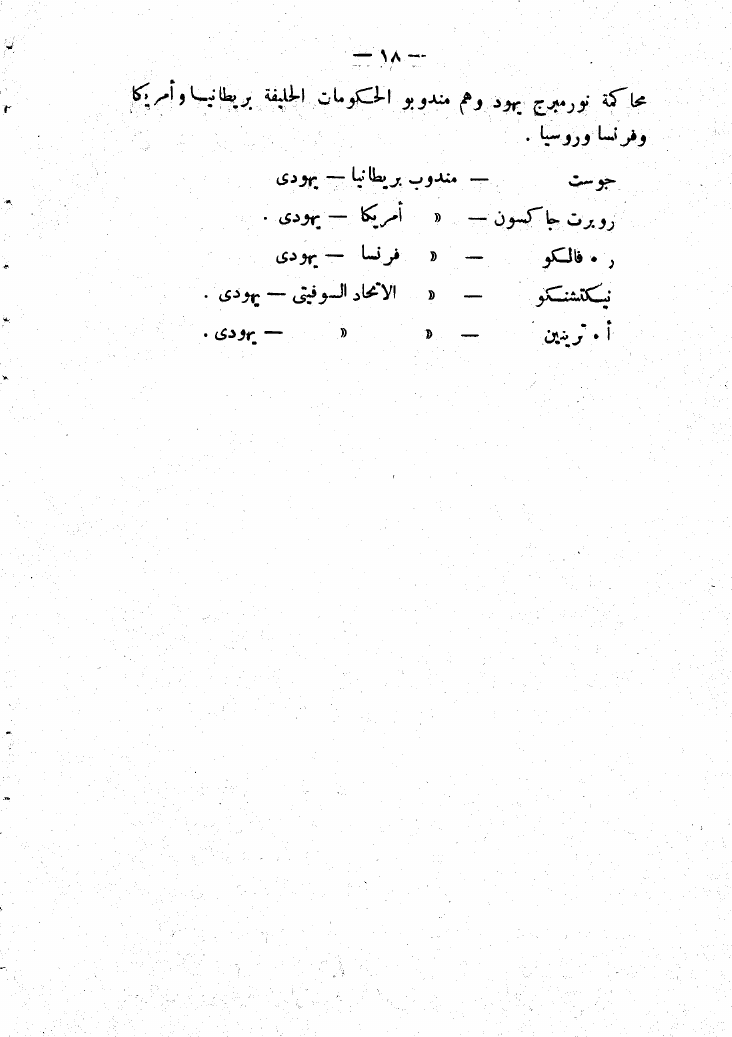 — ١٨ —
محاكمة نورمبرج يهود وهم مندوبو الحكومات الحليفة بريطانيا وأمريكا
وفرنسا وروسيا .
جوست — مندوب بريطانيا — يهودى
روبرت جاكسون — « أمريكا — يهودى .
ر . فالكو — « فرنسا — يهودى
نيكتشنكو — « الاتحاد السوفيتى — يهودى .
أ . ترينين — « « — يهودى .